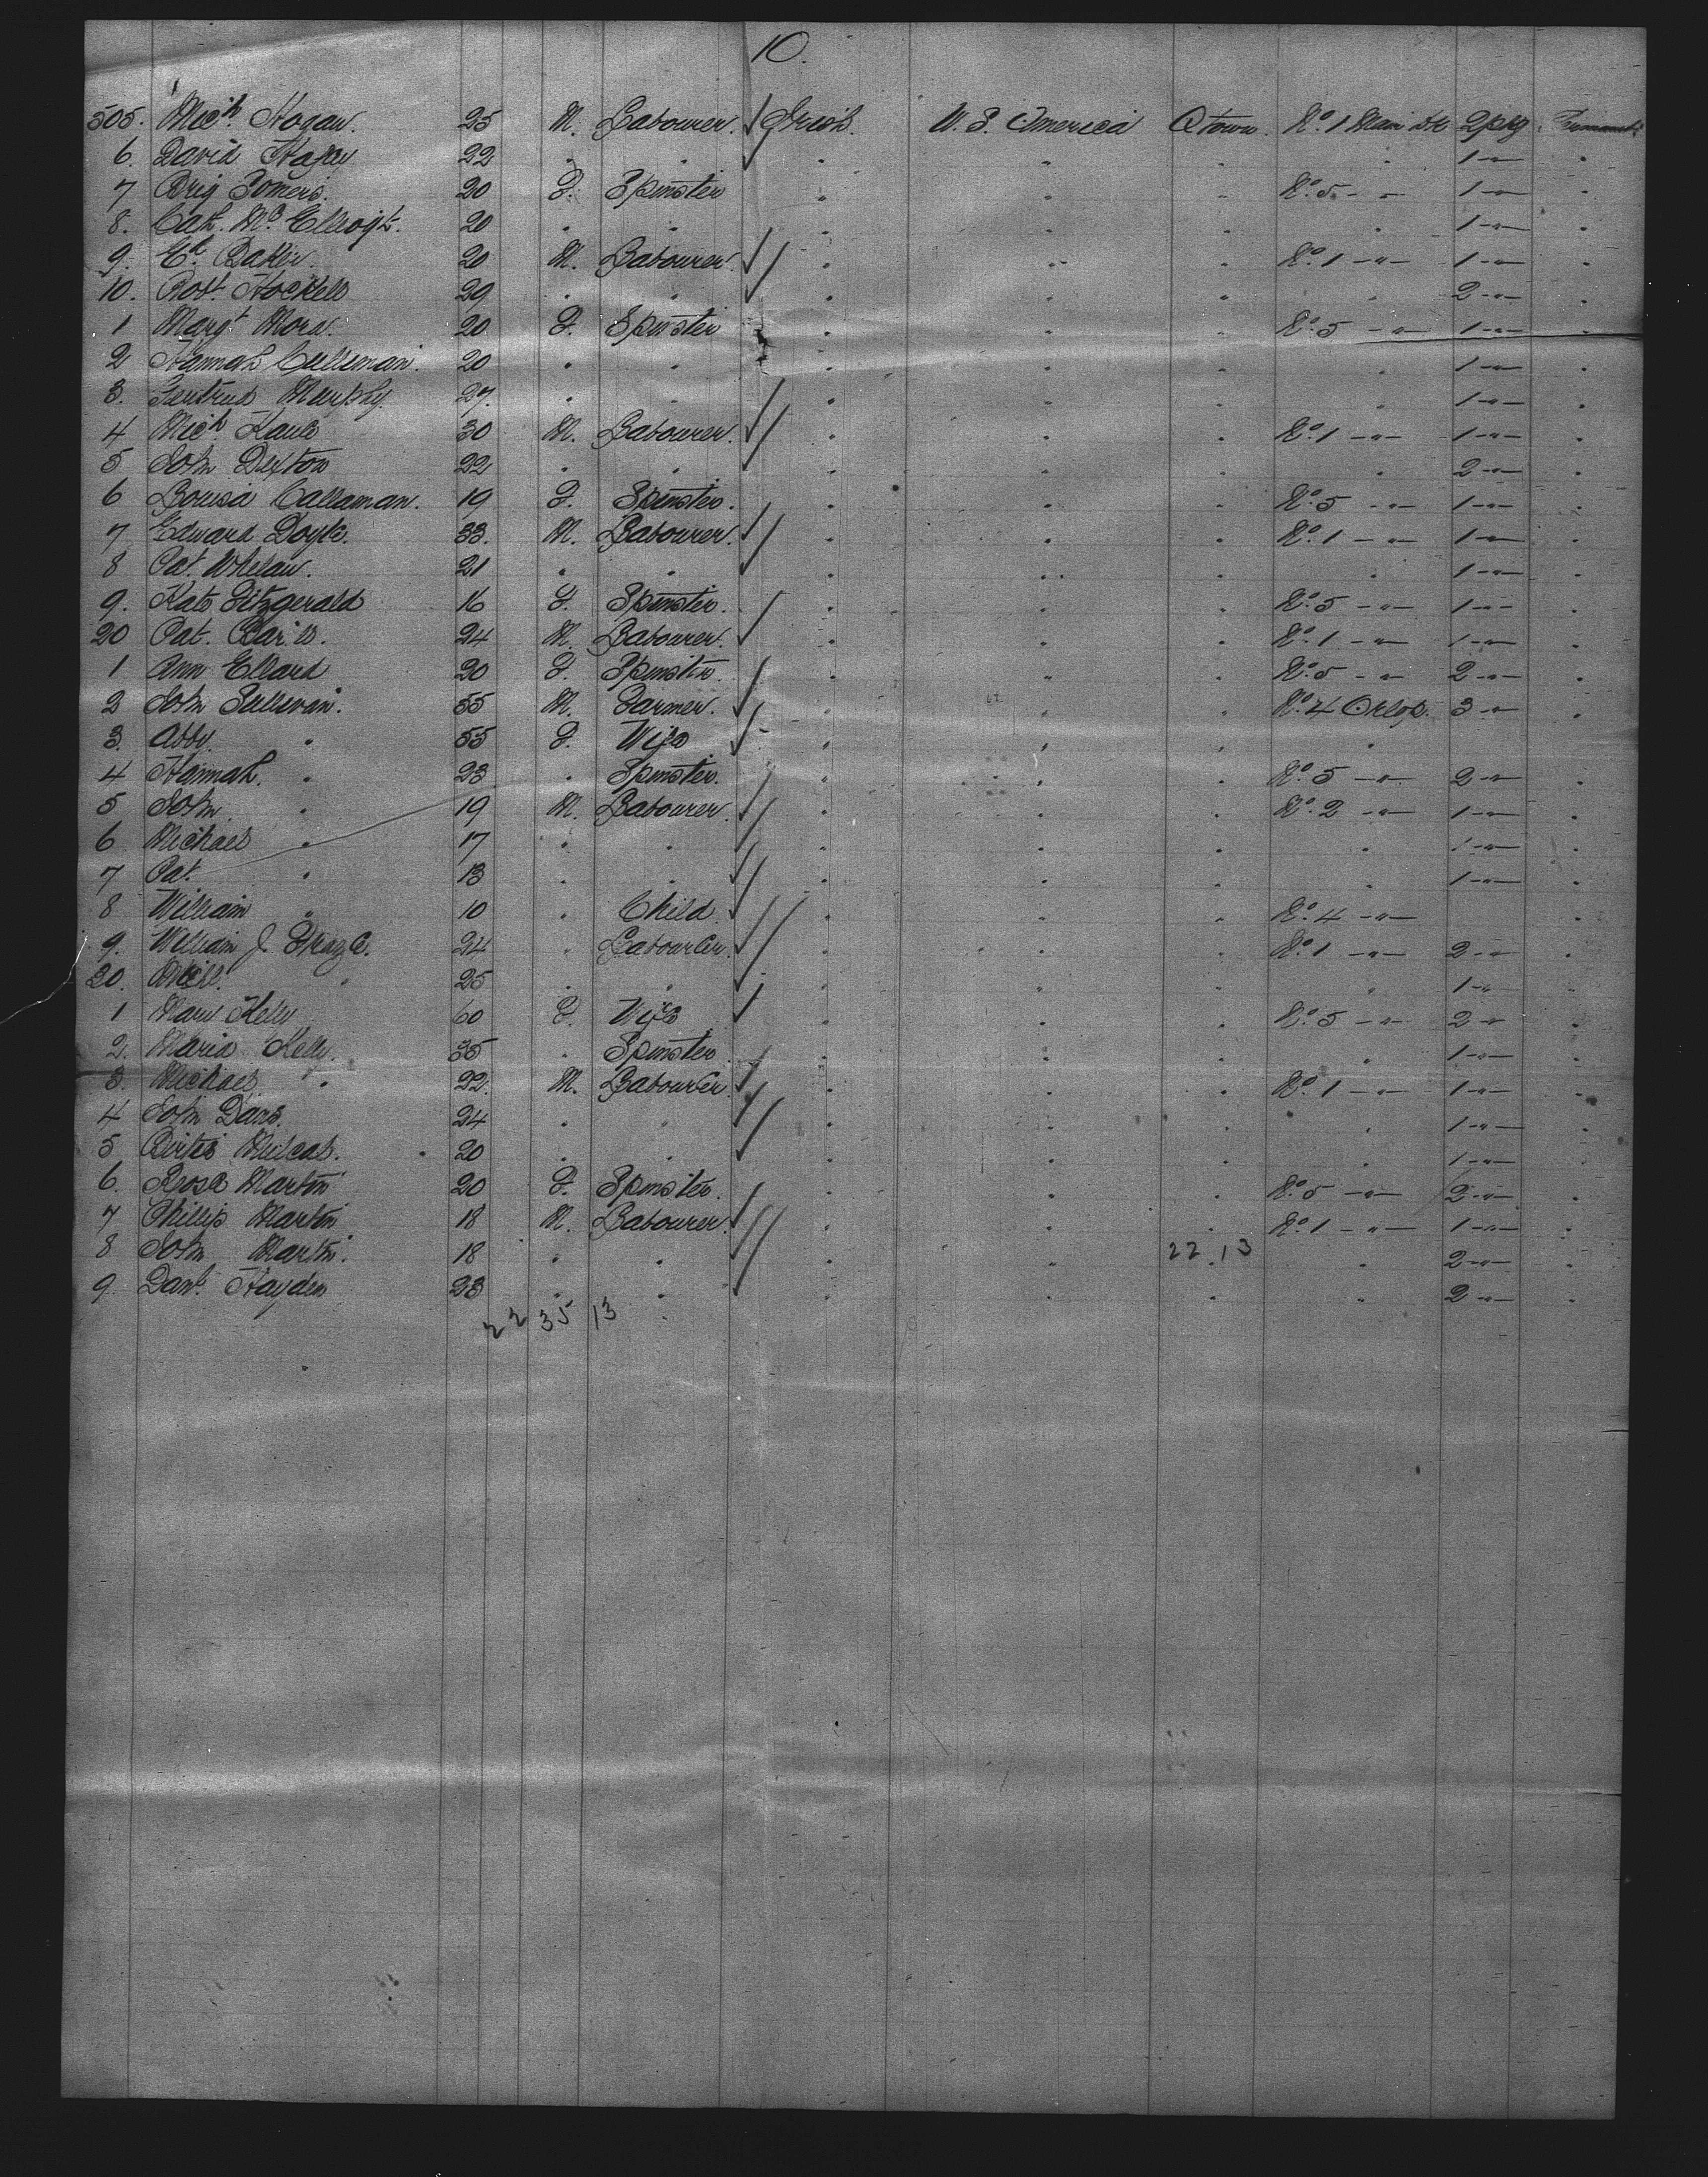 10.
505. Mich. Hogan. 25 M. Labourer. Irish. U.S. America Qtown. No. 1 Main Dk 2 pkg
6. David 22 " " " " " " 1 - " - "
7 Brig Somers. 20 F. Spinster " " " No. 5 - " - 1 - " - "
8. Cath. Mc 20 " " " " " " 1 - " - "
9. Ed. Baker. 20 M. Labourer. " " " No. 1 - " - 1 - " - "
10. Robt. 29 " " " " " " 2 - " - "
1 Margt. 20 F. Spinster " " " No. 5 - " - 1 - " - "
2 Hannah 20 " " " " " " 1 - " - "
3. Murphy. 27. " " " " " " 1 - " - "
4 Mich. 30 M. Labourer. " " " No. 1 - " - 1 - " - "
5 John Dexton 22 " " " " " " 2 - " - "
6 Louisa Callaman. 19 F. Spinster. " " " No. 5 - " - 1 - " - "
7 Edward Doyle. 33. M. Labourer. " " " No. 1 - " - 1 - " - "
8 Pat. Whelan. 21 " " " " " " 1 - " - "
9. Kate Fitzgerald 16 F. Spinster. " " " No. 5 - " - 1 - " - "
20 Pat. 24 M. Labourer. " " " No. 1 - " - 1 - " - "
1 Ann Ellard 20 F. Spinster. " " " No. 5 - " - 2 - " - "
2 John Sullivan. 55 M. Farmer. " " " No. 4 Orlop. 3 - " - "
3. Abby. " 55 F. Wife " " " "
4 Hannah. " 23 " Spinster. " " " No. 5 - " - 2 - " - "
5 John. " 19 M. Labourer. " " " No. 2 - " - 1 - " - "
6. Michael " 17 " " " " " " 1 - " - "
7 Pat. " 13 " " " " " " 1 - " - "
8 William " 10 " Child. " " " No. 4 - " -
9. William J. 24 " Labourer. " " " No. 1 - " - 2 - " - "
30. " 25 " " " " " " 1 - " - "
1 Mary Kelly 60 F. Wife " " " No. 5 - " - 2 - " - "
2. Maria Kelly. 35 " Spinster. " " " " 1 - " - "
3. Michael " 22. M. Labourer " " " No. 1 - " - 1 - " - "
4 John 24 " " " " " " 1 - " - "
5 20 " " " " " " 1 - " - "
6. Rose Martin 20 F. Spinster. " " " No. 5 - " - 2 - " - "
7 Phillip Martin 18 M. Labourer. " " " No. 1 - " - 1 - " - "
8 John Martin. 18 " " " " 22 . 13 " 2 - " - "
9. Danl. Hayden 23 " " " " " " 2 - " - "
22 35 13